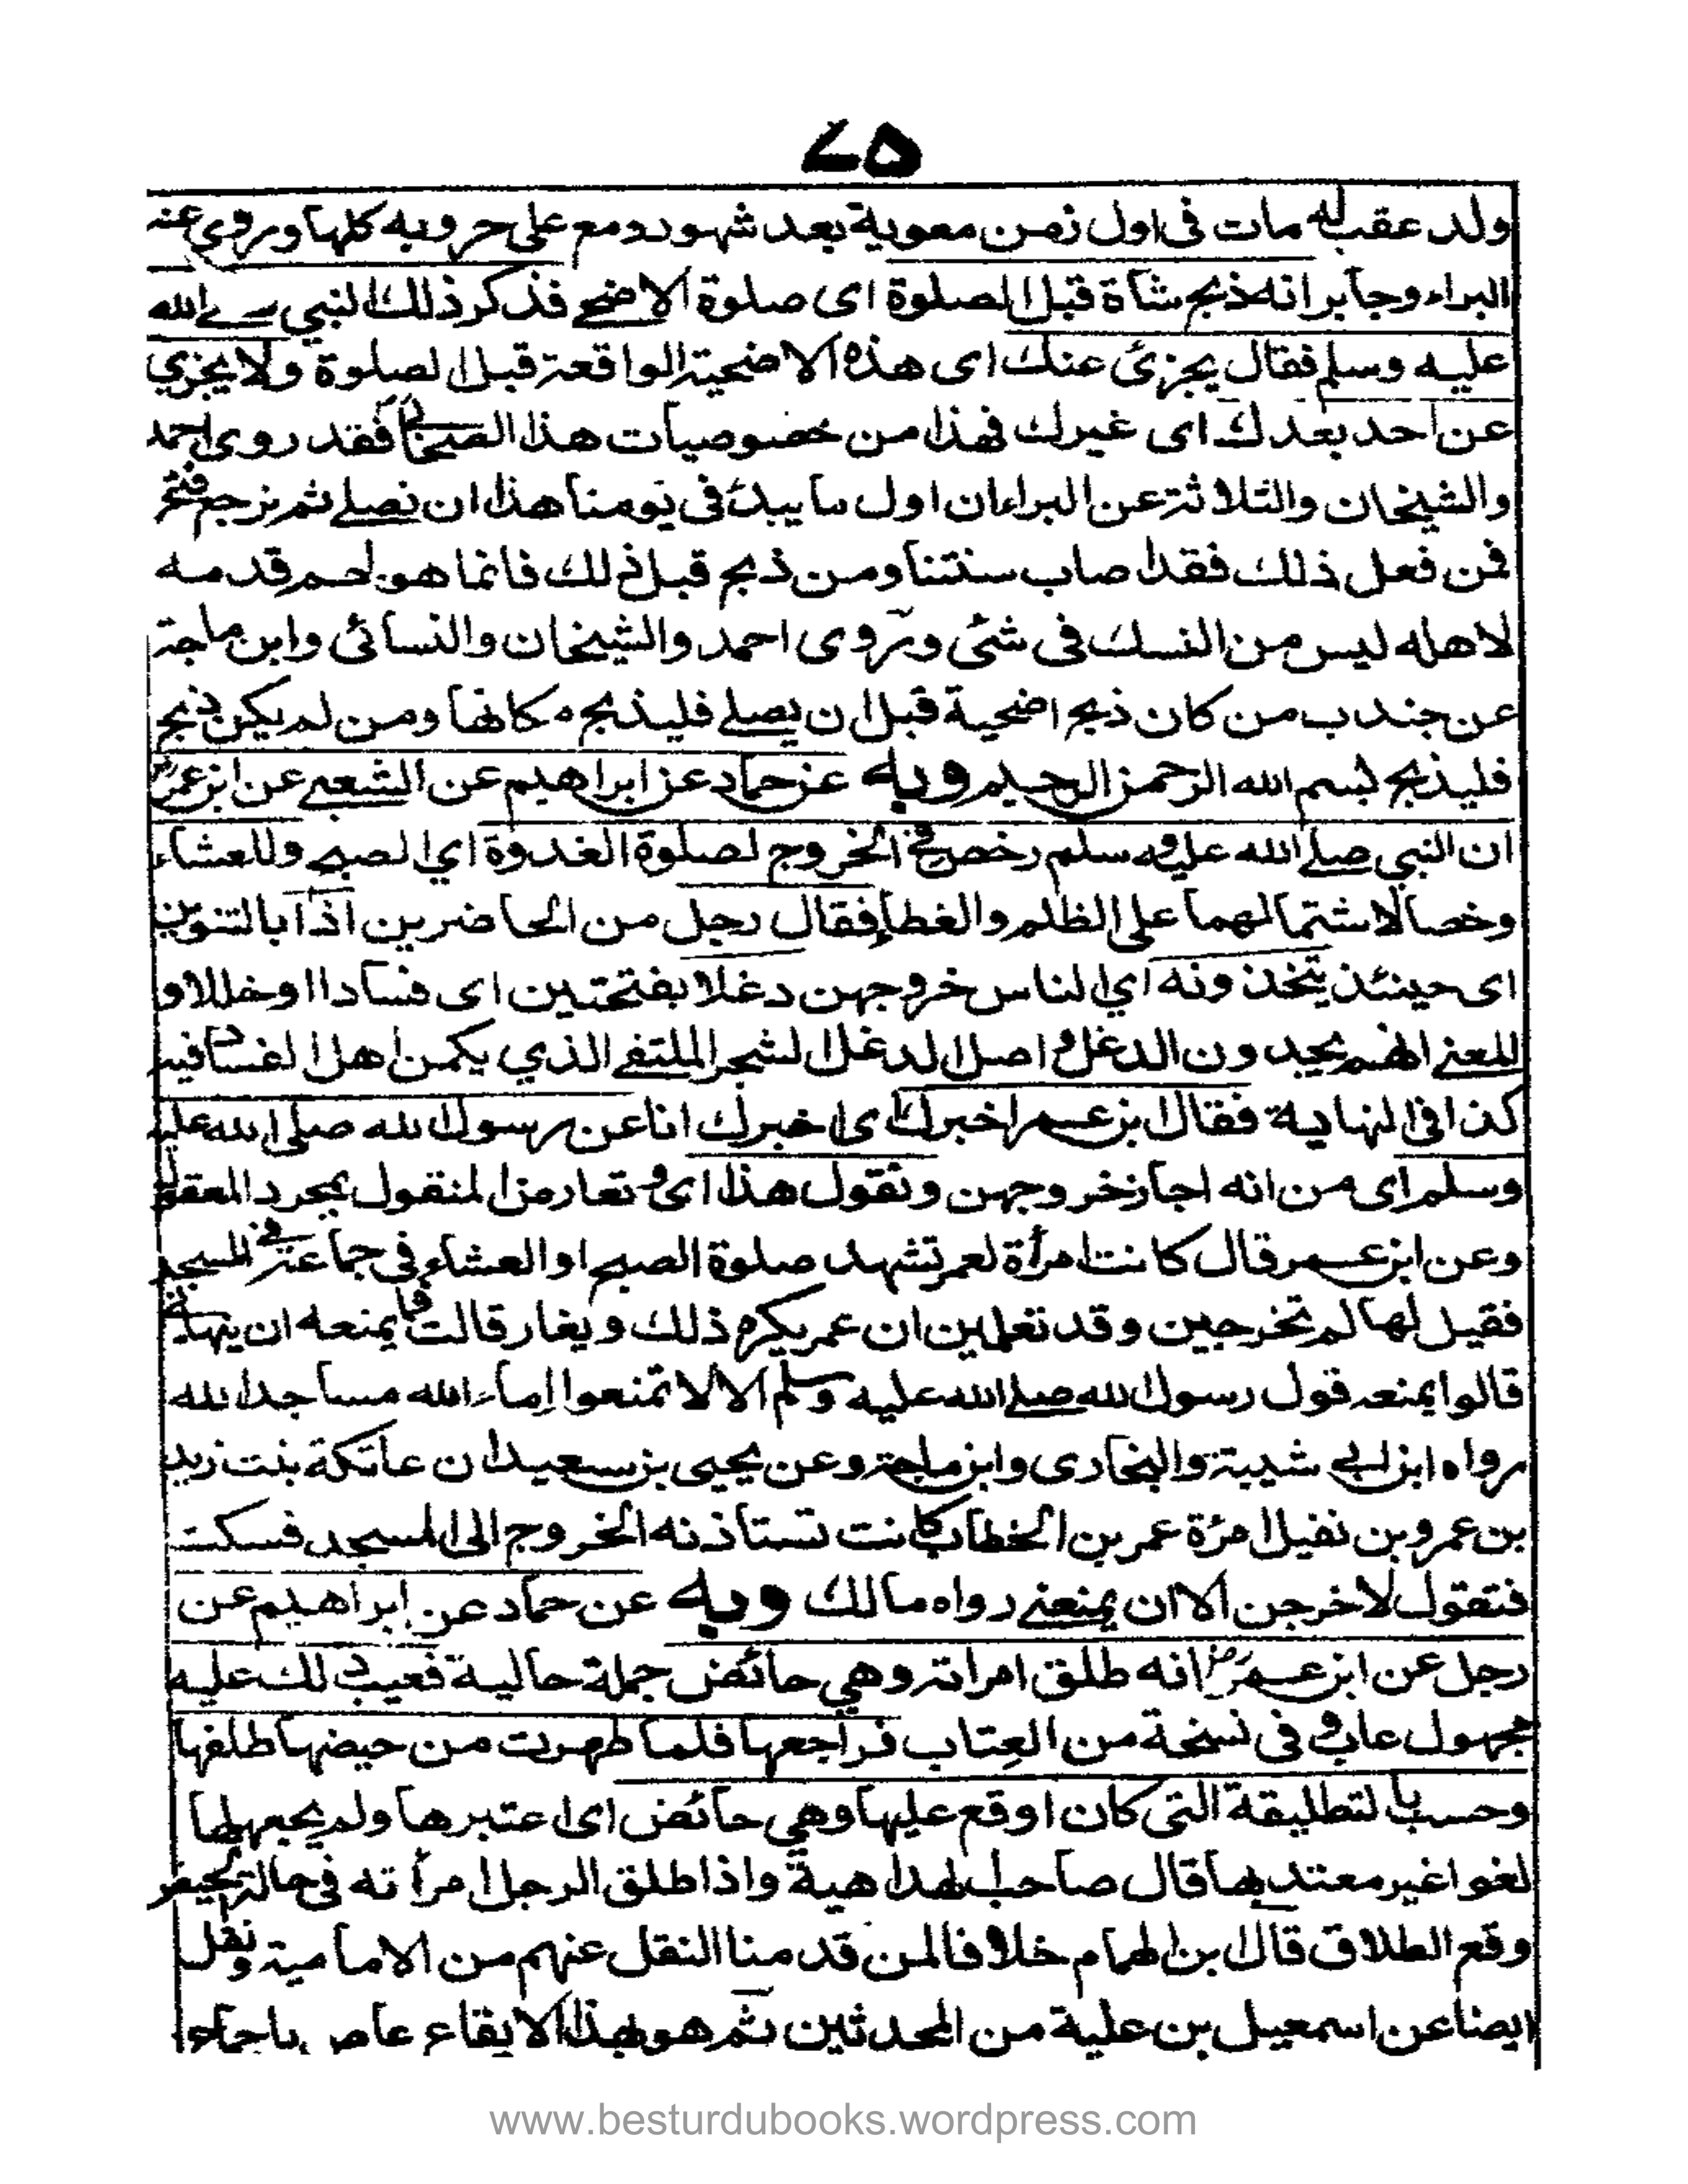 ٧٥
ولد عقب له مات فى اول زمن معوية بعد شهوده مع على حروبه كلها وروى عنه
البراء وجابر انه ذبح شاة قبل الصلوة اى صلوة الاضحى فذكر ذلك النبي صلے الله
عليه وسلم فقال يجزئ عنك اى هذه الاضحية الواقعة قبل الصلوة ولا يجزي
عن احد بعدك اى غيرك فهذا من خصوصيات هذا الصحابي فقد روى احمد
والشيخان والثلاثة عن البراء ان اول ما يبدئ فى يومنا هذا ان نصلے ثم نرجع فننحر
فمن فعل ذلك فقد اصاب سنتنا ومن ذبح قبل ذلك فانما هو لحم قدمه
لاهله ليس من النسك فى شئ وروى احمد والشيخان والنسائى وابن ماجة
عن جندب من كان ذبح اضحية قبل ان يصلے فليذبح مكانها ومن لم يكن ذبح
فليذبح بسم الله الرحمن الرحيم وبه عن حماد عن ابراهيم عن الشعبے عن ابن عمر
ان النبي صلے الله عليه وسلم رخص فے الخروج لصلوة الغدوة اي الصبح وللعشاء
وخصا لاشتمالهما على الظلم والغطاء فقال رجل من الحاضرين اذا بالتنوين
اى حينئذ يتخذونه اي الناس خروجهن دغلا بفتحتين اى فسادا او خللا و
المعنے انهم يجدون الدغل و اصل الدغل الشجر الملتف الذي يكمن اهل الفساد فيه
كذا فى النهاية فقال ابن عمر اخبرك اى اخبرك انا عن رسول الله صلى الله عليه
وسلم اى من انه اجاز خروجهن وتقول هذا اى وتعارض المنقول بمجرد المعقول
وعن ابن عمر قال كانت امرأة لعمر تشهد صلوة الصبح او العشاء فى جماعة فے المسجد
فقيل لها لم تخرجين وقد تعلمين ان عمر يكره ذلك ويغار قالت فما يمنعه ان ينهانى
قالوا يمنعه قول رسول الله صلے الله عليه وسلم الا لا تمنعوا اماء الله مساجد الله
رواه ابن ابے شيبة والبخارى وابن ماجة وعن يحيى بن سعيد ان عاتكة بنت زيد
بن عمرو بن نفيل امرءة عمر بن الخطاب كانت تستاذنه الخروج الى المسجد فسكت
فتقول لاخرجن الا ان يمنعنے رواه مالك وبه عن حماد عن ابراهيم عن
رجل عن ابن عمر انه طلق امراته وهي حائض جملة حالية فعيب ذلك عليه
مجهول عاب و فى نسخة من العتاب فراجعها فلما طهرت من حيضها طلقها
وحسب بالتطليقة التى كان اوقع عليها وهي حائض اى اعتبرها ولم يجعلها
لغوا غير معتد بها قال صاحب الهداهية واذا طلق الرجل امرأته فى حالة الحيض
وقع الطلاق قال ابن الهمام خلافا لمن قدمنا النقل عنهم من الامامية ونقل
ايضا عن اسمعيل بن علية من المحدثين ثم هو بهذا الايقاع عاص باجماع
www.besturdubooks.wordpress.com